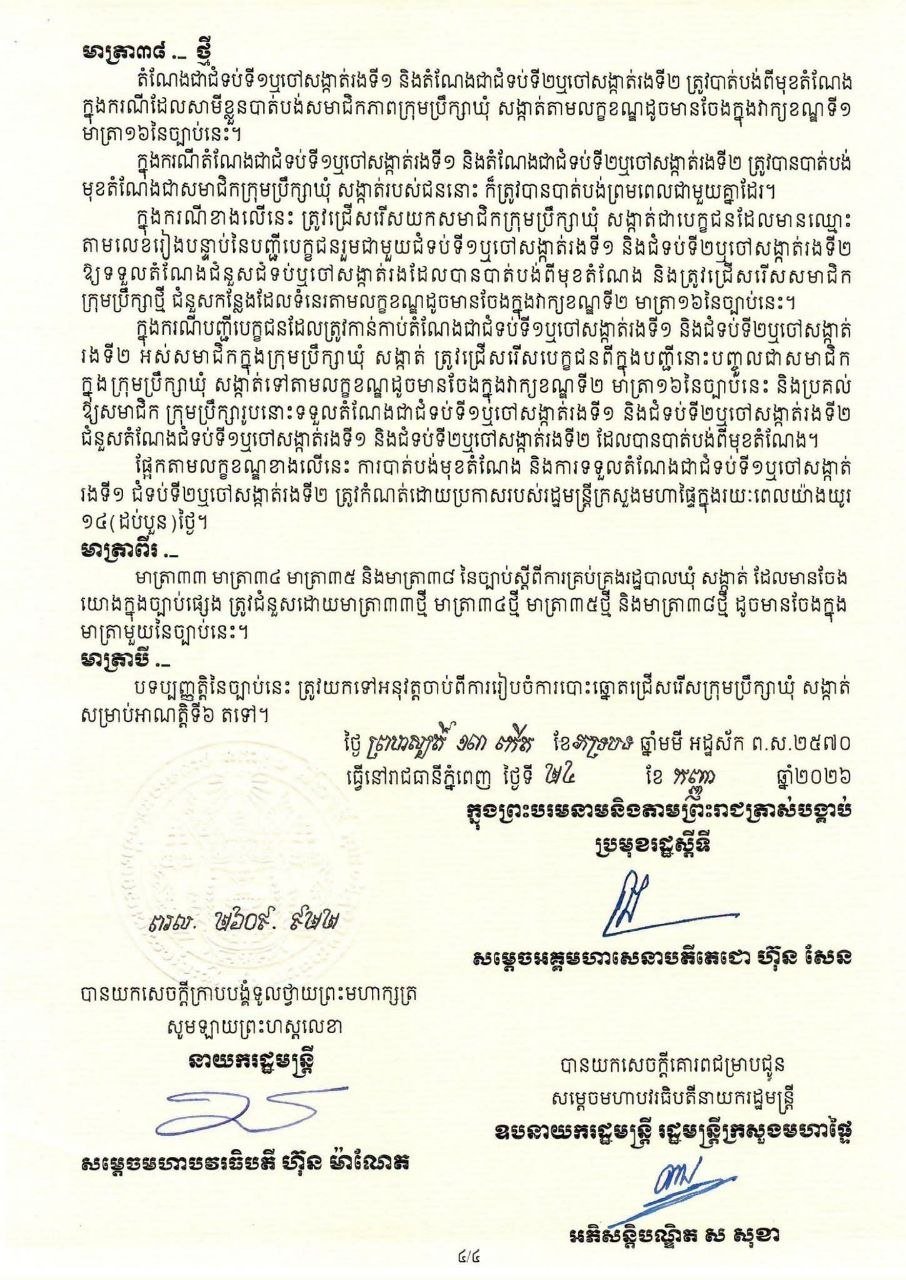 មាត្រា៣៨ ._ ថ្មី
តំណែងជាជំទប់ទី១ឬចៅសង្កាត់រងទី១ និងតំណែងជាជំទប់ទី២ឬចៅសង្កាត់រងទី២ ត្រូវបាត់បង់ពីមុខតំណែង
ក្នុងករណីដែលសាមីខ្លួនបាត់បង់សមាជិកភាពក្រុមប្រឹក្សាឃុំ សង្កាត់តាមលក្ខខណ្ឌដូចមានចែងក្នុងវាក្យខណ្ឌទី១
មាត្រា១៦នៃច្បាប់នេះ។
ក្នុងករណីតំណែងជាជំទប់ទី១ឬចៅសង្កាត់រងទី១ និងតំណែងជាជំទប់ទី២ឬចៅសង្កាត់រងទី២ ត្រូវបានបាត់បង់
មុខតំណែងជាសមាជិកក្រុមប្រឹក្សាឃុំ សង្កាត់របស់ជននោះ ក៏ត្រូវបានបាត់បង់ព្រមពេលជាមួយគ្នាដែរ។
ក្នុងករណីខាងលើនេះ ត្រូវជ្រើសរើសយកសមាជិកក្រុមប្រឹក្សាឃុំ សង្កាត់ជាបេក្ខជនដែលមានឈ្មោះ
តាមលេខរៀងបន្ទាប់នៃបញ្ជីបេក្ខជនរួមជាមួយជំទប់ទី១ឬចៅសង្កាត់រងទី១ និងជំទប់ទី២ឬចៅសង្កាត់រងទី២
ឱ្យទទួលតំណែងជំនួសជំទប់ឬចៅសង្កាត់រងដែលបានបាត់បង់ពីមុខតំណែង និងត្រូវជ្រើសរើសសមាជិក
ក្រុមប្រឹក្សាថ្មី ជំនួសកន្លែងដែលទំនេរតាមលក្ខខណ្ឌដូចមានចែងក្នុងវាក្យខណ្ឌទី២ មាត្រា១៦នៃច្បាប់នេះ។
ក្នុងករណីបញ្ជីបេក្ខជនដែលត្រូវកាន់កាប់តំណែងជាជំទប់ទី១ឬចៅសង្កាត់រងទី១ និងជំទប់ទី២ឬចៅសង្កាត់
រងទី២ អស់សមាជិកក្នុងក្រុមប្រឹក្សាឃុំ សង្កាត់ ត្រូវជ្រើសរើសបេក្ខជនពីក្នុងបញ្ជីនោះបញ្ចូលជាសមាជិក
ក្នុងក្រុមប្រឹក្សាឃុំ សង្កាត់ទៅតាមលក្ខខណ្ឌដូចមានចែងក្នុងវាក្យខណ្ឌទី២ មាត្រា១៦នៃច្បាប់នេះ និងប្រគល់
ឱ្យសមាជិក ក្រុមប្រឹក្សារូបនោះទទួលតំណែងជាជំទប់ទី១ឬចៅសង្កាត់រងទី១ និងជំទប់ទី២ឬចៅសង្កាត់រងទី២
ជំនួសតំណែងជំទប់ទី១ឬចៅសង្កាត់រងទី១ និងជំទប់ទី២ឬចៅសង្កាត់រងទី២ ដែលបានបាត់បង់ពីមុខតំណែង។
ផ្អែកតាមលក្ខខណ្ឌខាងលើនេះ ការបាត់បង់មុខតំណែង និងការទទួលតំណែងជាជំទប់ទី១ឬចៅសង្កាត់
រងទី១ ជំទប់ទី២ឬចៅសង្កាត់រងទី២ ត្រូវកំណត់ដោយប្រកាសរបស់រដ្ឋមន្ត្រីក្រសួងមហាផ្ទៃក្នុងរយៈពេលយ៉ាងយូរ
១៤(ដប់បួន)ថ្ងៃ។
មាត្រាពីរ ._
មាត្រា៣៣ មាត្រា៣៤ មាត្រា៣៥ និងមាត្រា៣៨ នៃច្បាប់ស្តីពីការគ្រប់គ្រងរដ្ឋបាលឃុំ សង្កាត់ ដែលមានចែង
យោងក្នុងច្បាប់ផ្សេង ត្រូវជំនួសដោយមាត្រា៣៣ថ្មី មាត្រា៣៤ថ្មី មាត្រា៣៥ថ្មី និងមាត្រា៣៨ថ្មី ដូចមានចែងក្នុង
មាត្រាមួយនៃច្បាប់នេះ។
មាត្រាបី ._
បទប្បញ្ញត្តិនៃច្បាប់នេះ ត្រូវយកទៅអនុវត្តចាប់ពីការរៀបចំការបោះឆ្នោតជ្រើសរើសក្រុមប្រឹក្សាឃុំ សង្កាត់
សម្រាប់អាណត្តិទី៦ តទៅ។
ថ្ងៃ ព្រហស្បតិ៍ ១៣ កើត ខែ ភទ្របទ ឆ្នាំមមី អដ្ឋស័ក ព.ស.២៥៧០
ធ្វើនៅរាជធានីភ្នំពេញ ថ្ងៃទី ២៤ ខែ កញ្ញា ឆ្នាំ២០២៦
ក្នុងព្រះបរមនាមនិងតាមព្រះរាជត្រាស់បង្គាប់
ប្រមុខរដ្ឋស្តីទី
ពរល. ២៦០៩. ៩២២
សម្តេចអគ្គមហាសេនាបតីតេជោ ហ៊ុន សែន
បានយកសេចក្តីក្រាបបង្គំទូលថ្វាយព្រះមហាក្សត្រ
សូមឡាយព្រះហស្តលេខា
នាយករដ្ឋមន្ត្រី
សម្តេចមហាបវរធិបតី ហ៊ុន ម៉ាណែត
បានយកសេចក្តីគោរពជម្រាបជូន
សម្តេចមហាបវរធិបតីនាយករដ្ឋមន្ត្រី
ឧបនាយករដ្ឋមន្ត្រី រដ្ឋមន្ត្រីក្រសួងមហាផ្ទៃ
អភិសន្តិបណ្ឌិត ស សុខា
៤/៤